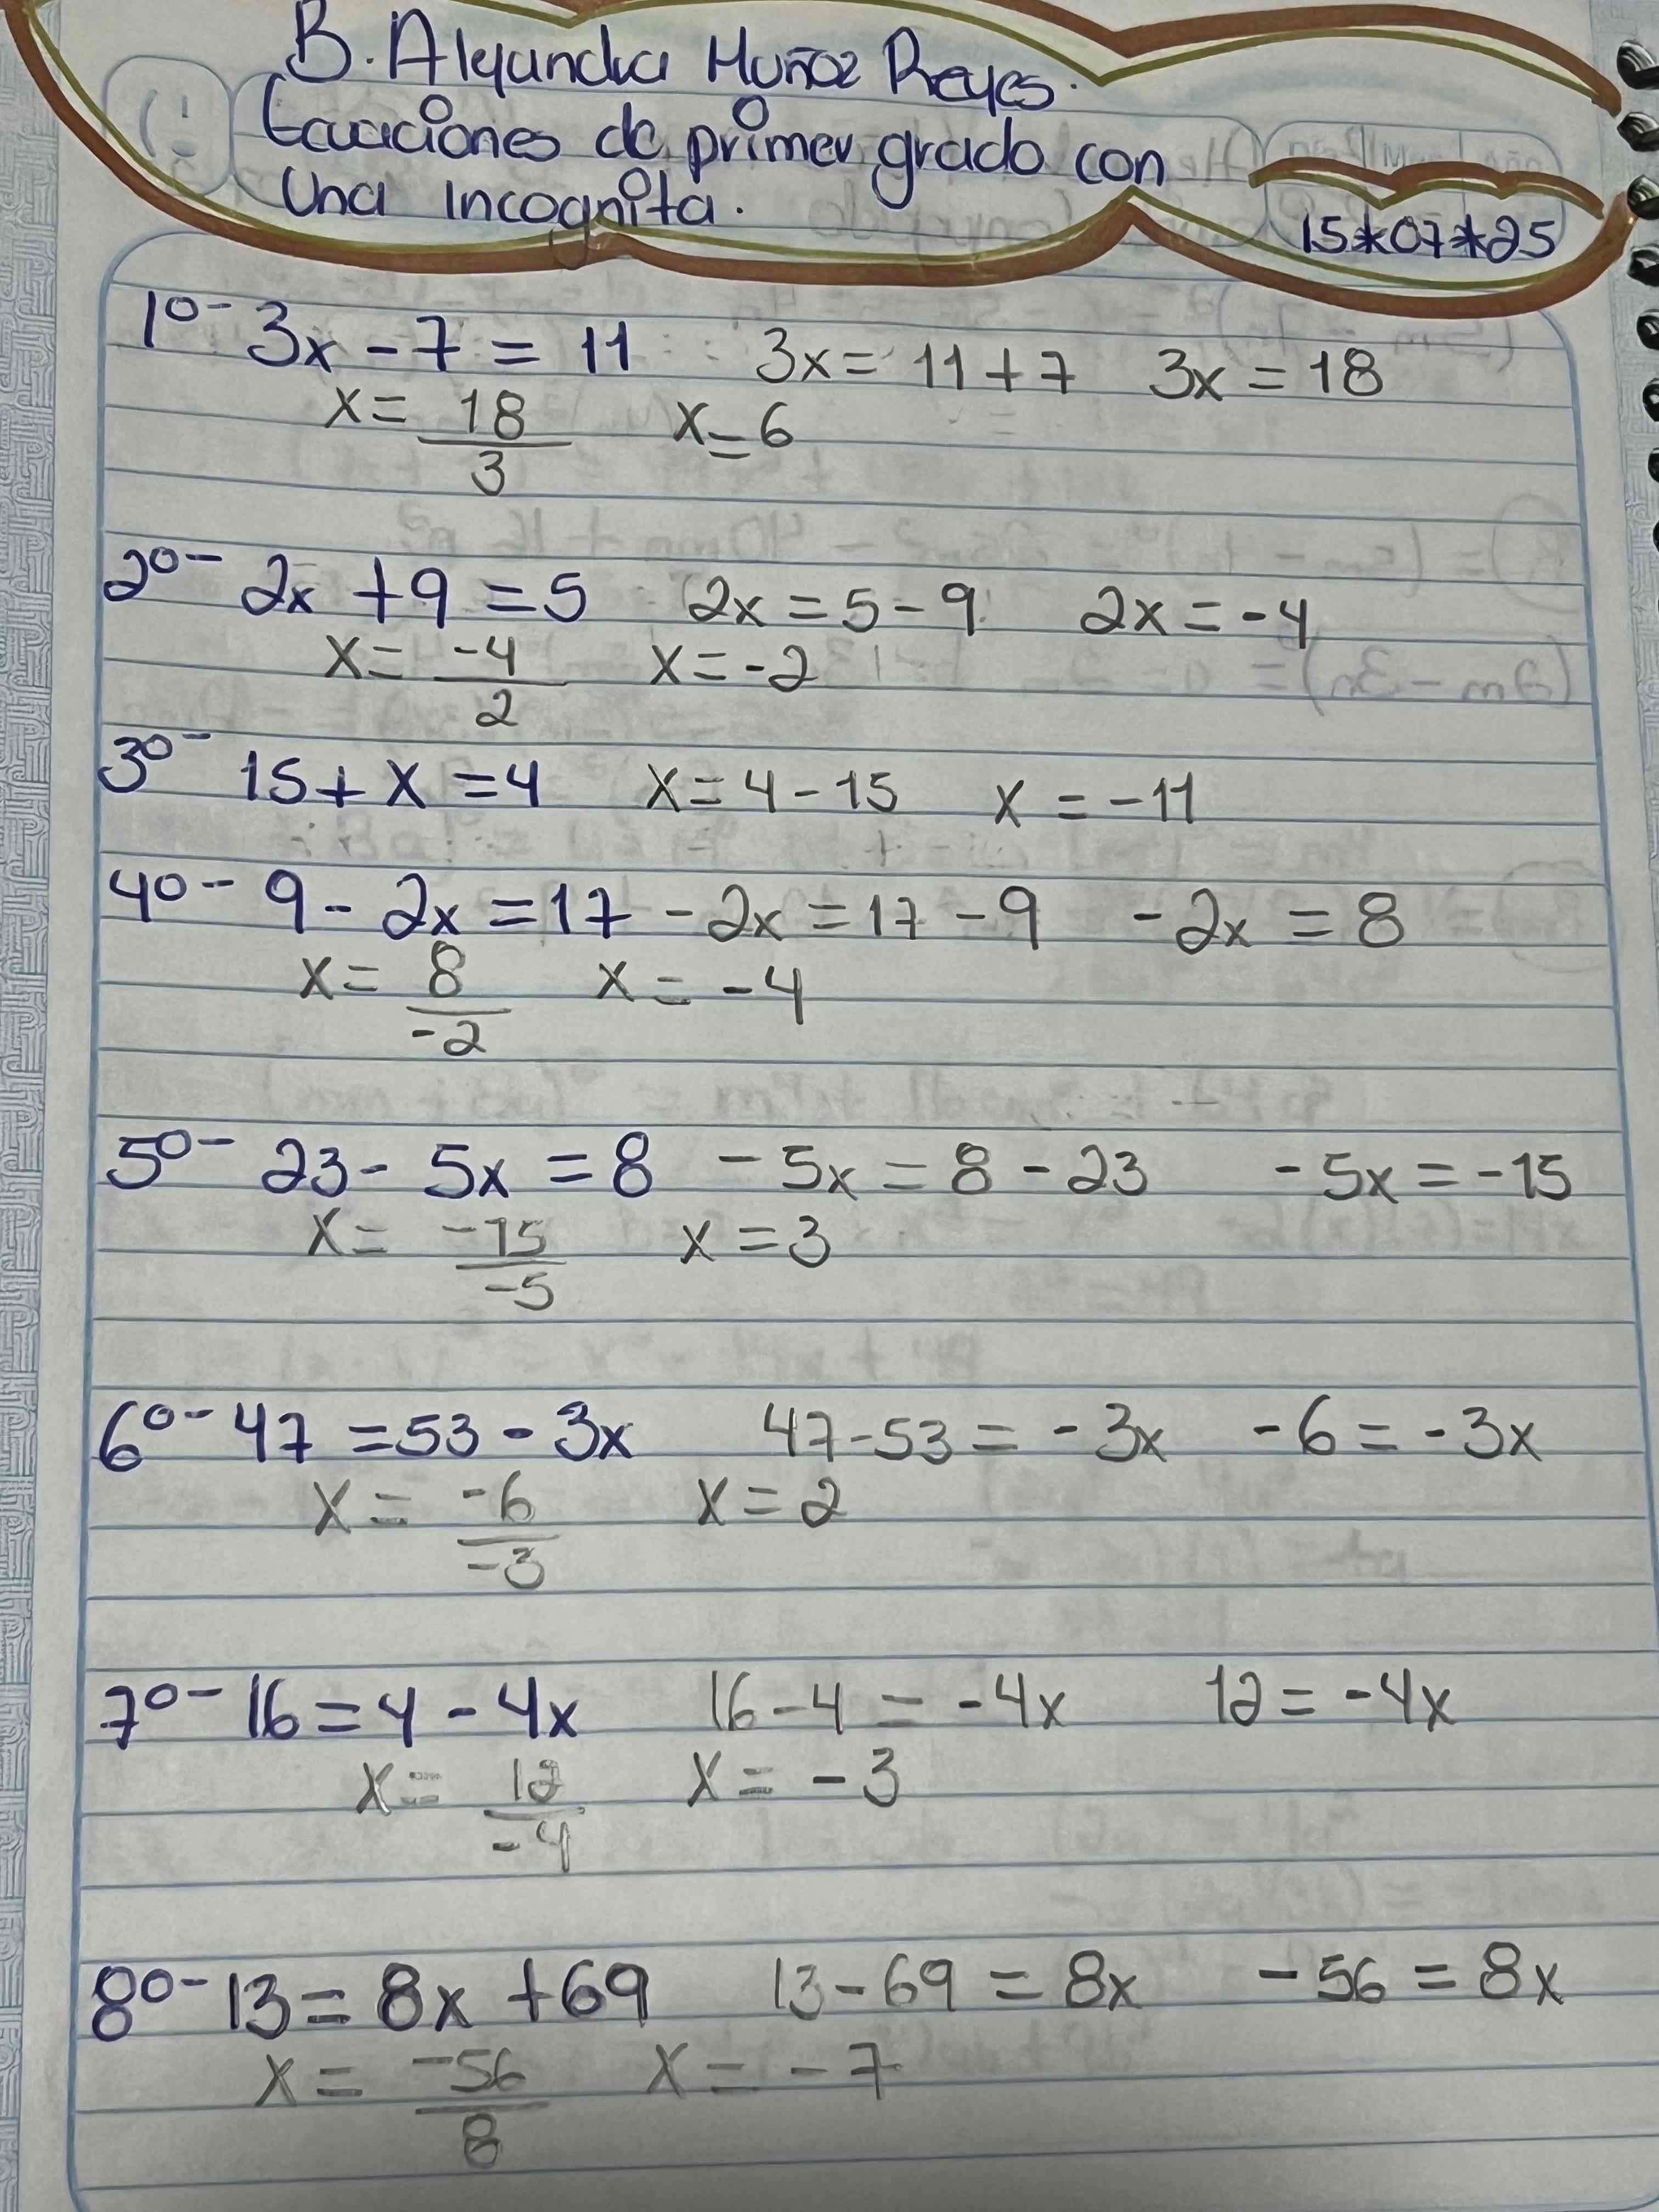 B. Alejandra Muñoz Reyes.
Ecuaciones de primer grado con
una incognita.
15*07*25
1°- 3x - 7 = 11 3x = 11 + 7 3x = 18
x = 18/3 x = 6
2°- 2x + 9 = 5 2x = 5 - 9 2x = -4
x = -4/2 x = -2
3°- 15 + x = 4 x = 4 - 15 x = -11
4°- 9 - 2x = 17 -2x = 17 - 9 -2x = 8
x = 8/-2 x = -4
5°- 23 - 5x = 8 -5x = 8 - 23 -5x = -15
x = -15/-5 x = 3
6°- 47 = 53 - 3x 47 - 53 = -3x -6 = -3x
x = -6/-3 x = 2
7°- 16 = 4 - 4x 16 - 4 = -4x 12 = -4x
x = 12/-4 x = -3
8°- 13 = 8x + 69 13 - 69 = 8x -56 = 8x
x = -56/8 x = -7